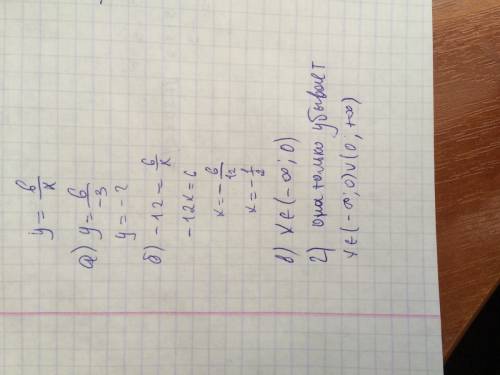 y = 6/x
а) y = 6/-3
y = -2
б) -12 = 6/x
-12x = 6
x = -6/12
x = -1/2
в) x∈(-∞; 0)
г) она только убывает
x∈(-∞; 0)∪(0; +∞)